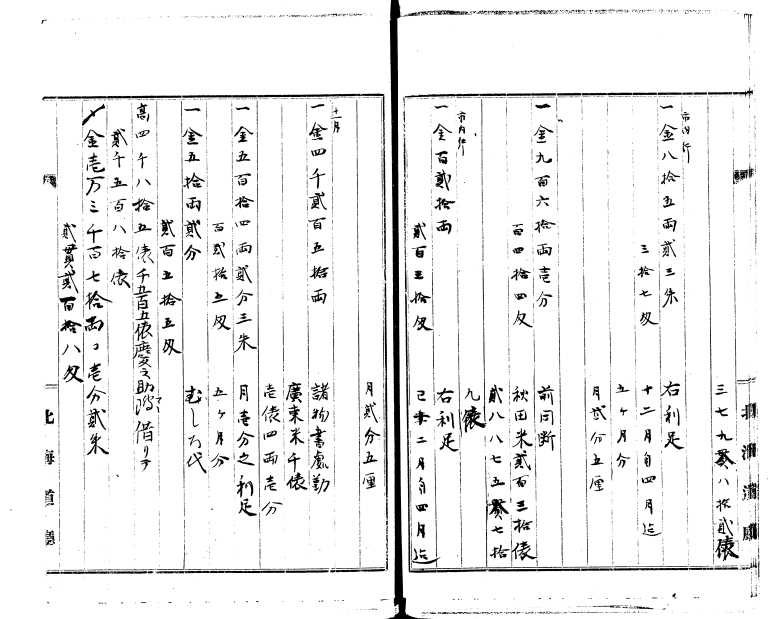 三七九貫八拾貳俵
市内行
一金八拾五両貳三朱
右利足
三拾七匁
十二月ゟ四月迄
五ヶ月分
月貳分五厘
一金九百六拾両壱分
前同断
百四拾四匁
秋田米貳百三拾俵
貳八八七五貫七拾
九俵
市内仁
一金百貳拾両
右利足
貳百三拾匁
己二月ゟ四月迄
月貳分五厘
十一月
一金四千貳百五拾両
諸物書處勤
廣東米千俵
壱俵四両壱分
一金五百拾四両貳分三朱
月壱分之利足
百貳拾五匁
五ヶ月分
一金五拾両貳分
むしろ代
貳百五拾五匁
高四千八拾五俵千五百五俵慶之助借り
貳千五百八拾俵
〆金壱万三千百七拾両ト壱分貳朱
貳貫貳百拾八匁
北海道廳